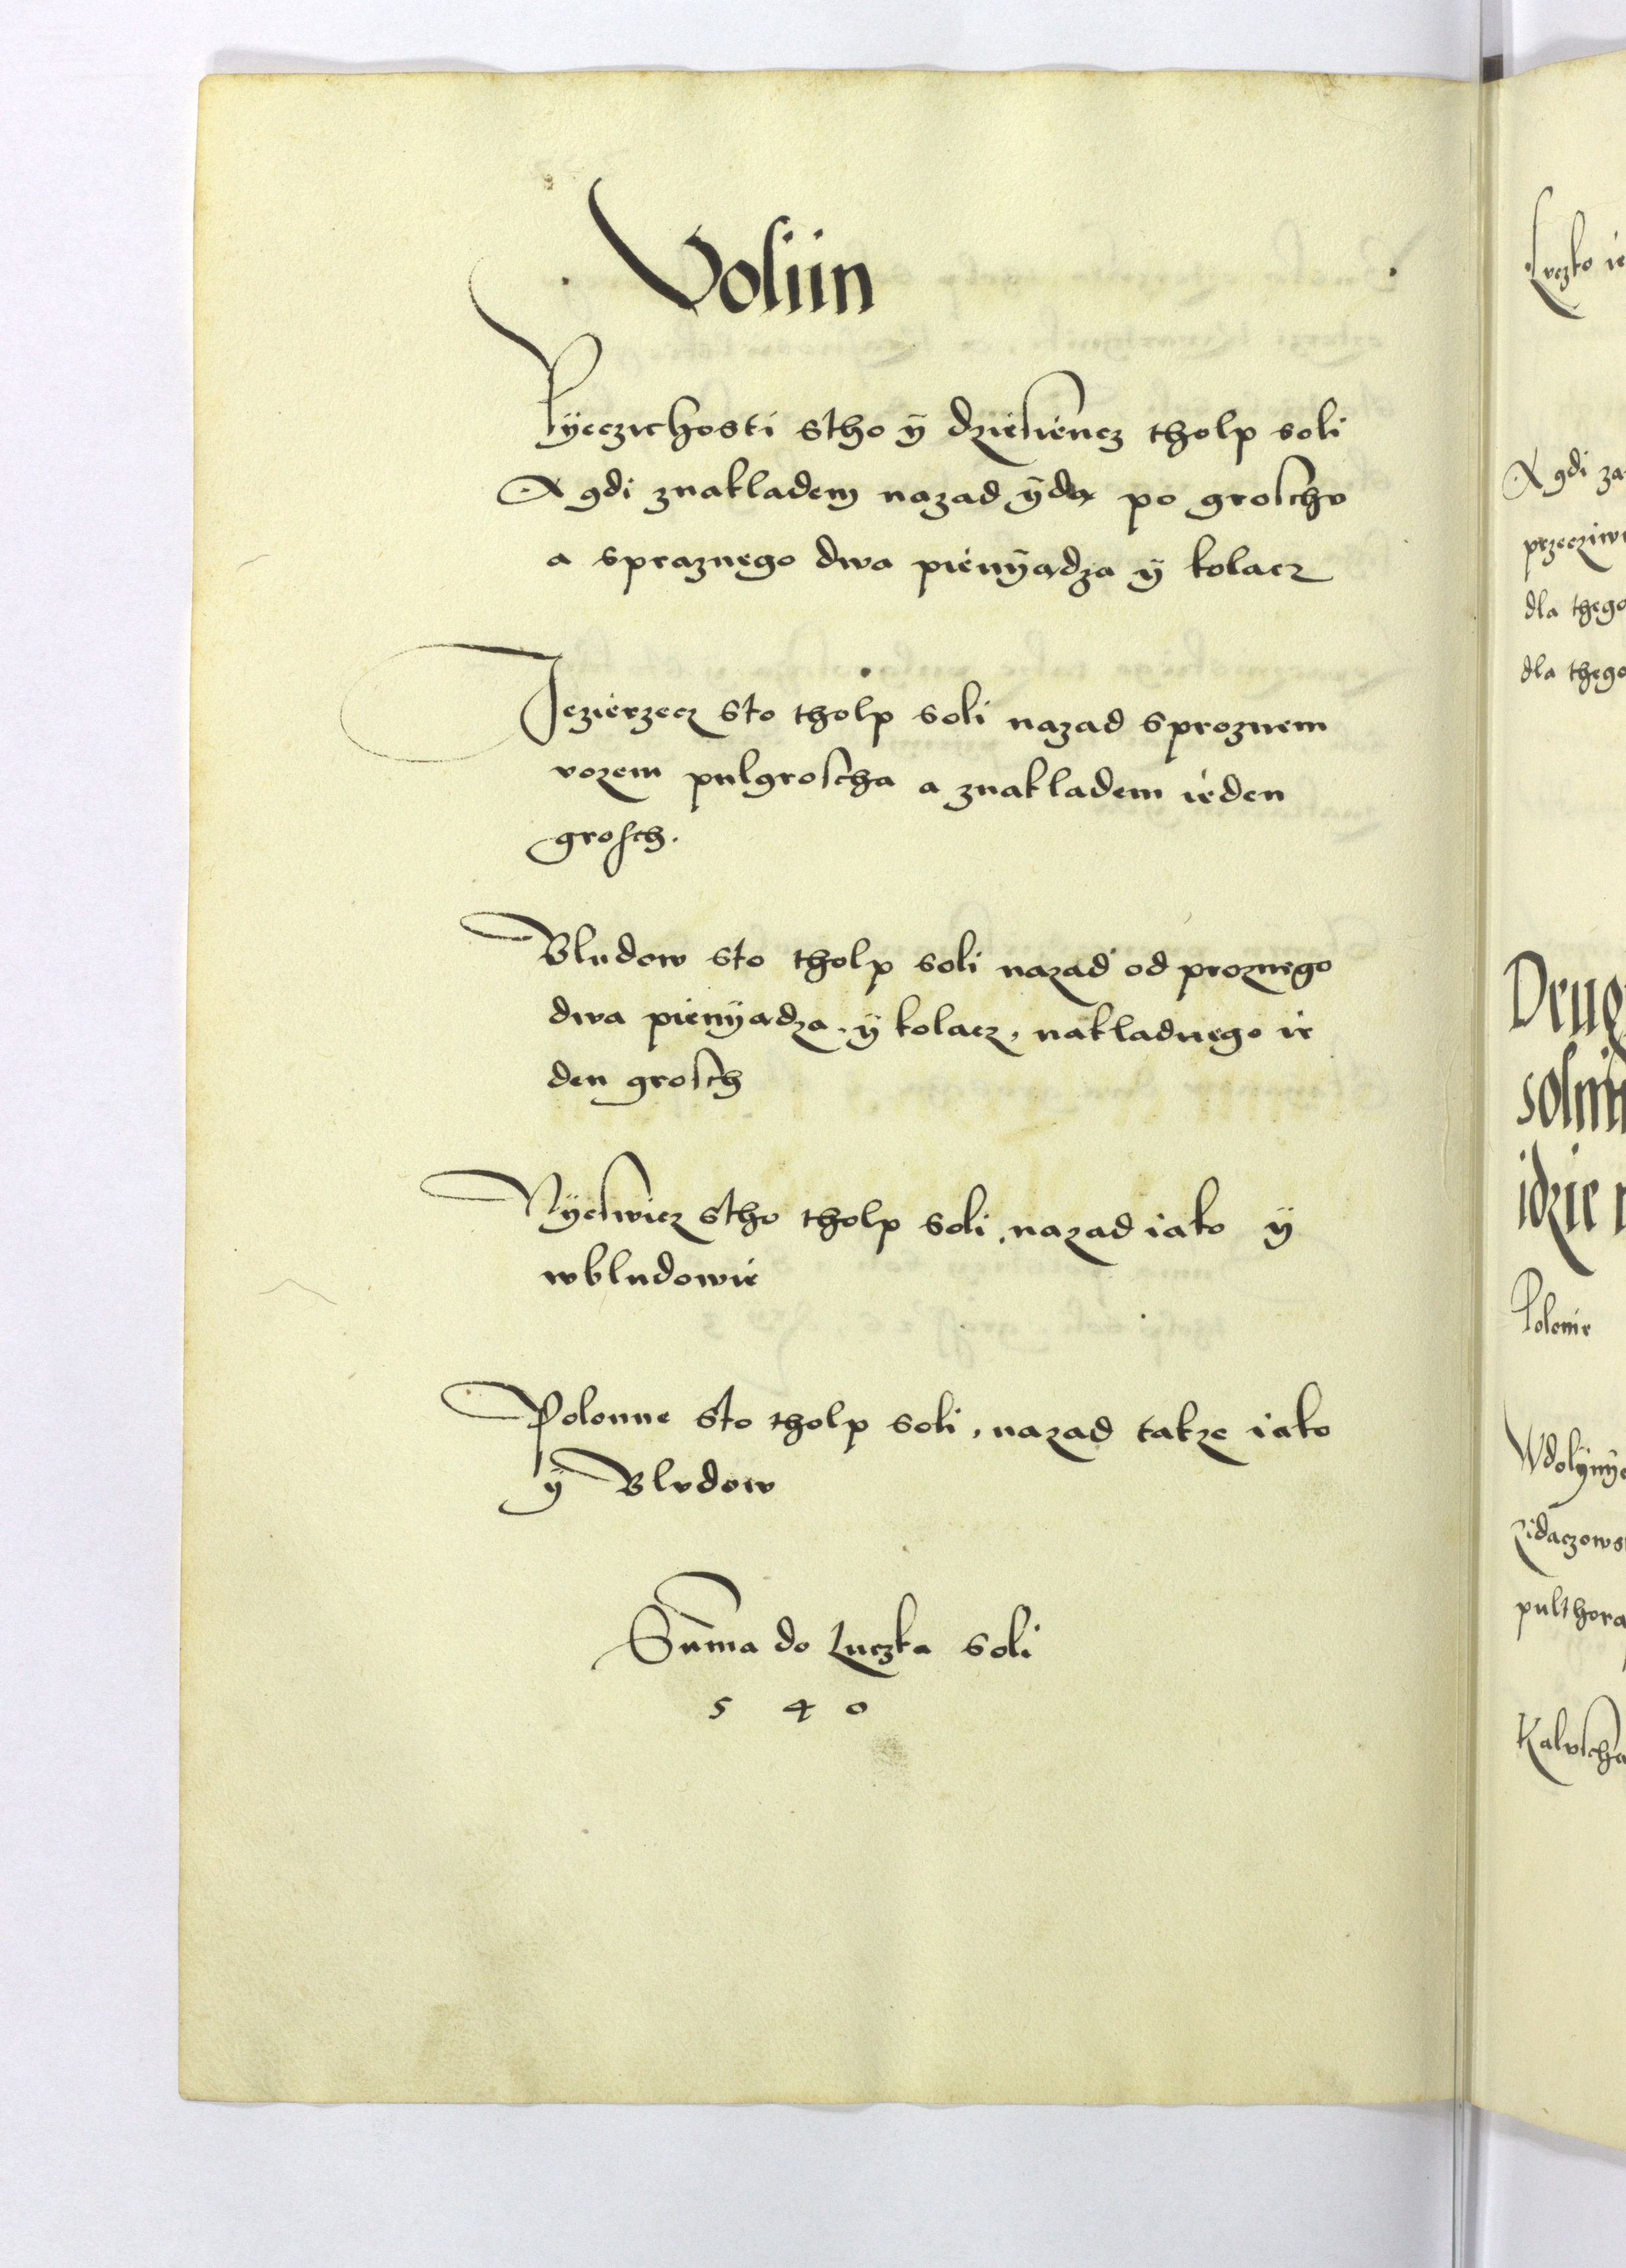 Voliin
Pÿeczichosti stho ÿ dziesiencz tholp soli
A gdi znakladem nazad ÿdą po groschv
a spraznego dwa pienÿądza ÿ kolacz
Jezierzecz sto tholp soli nazad sproznem
vozem pulgroscha a znakladem ieden
grosch.
Bludow sto tholp soli nazad od proznego
dwa pienÿądza, ÿ kolacz, nakladnego ie
den grosch
Nÿeswicz stho tholp soli, nazad iako ÿ
wbludowie
Polonne sto tholp soli, nazad takze iako
ÿ Blvdow
Summa do Luczka soli
5 4 0
Lvczko ie
A gdi za
przecziw
dla thego
dla thego
Drug
solni
idzie
Polonie
Wdolÿnÿ
zidaczows
pulthora
Kalvscha